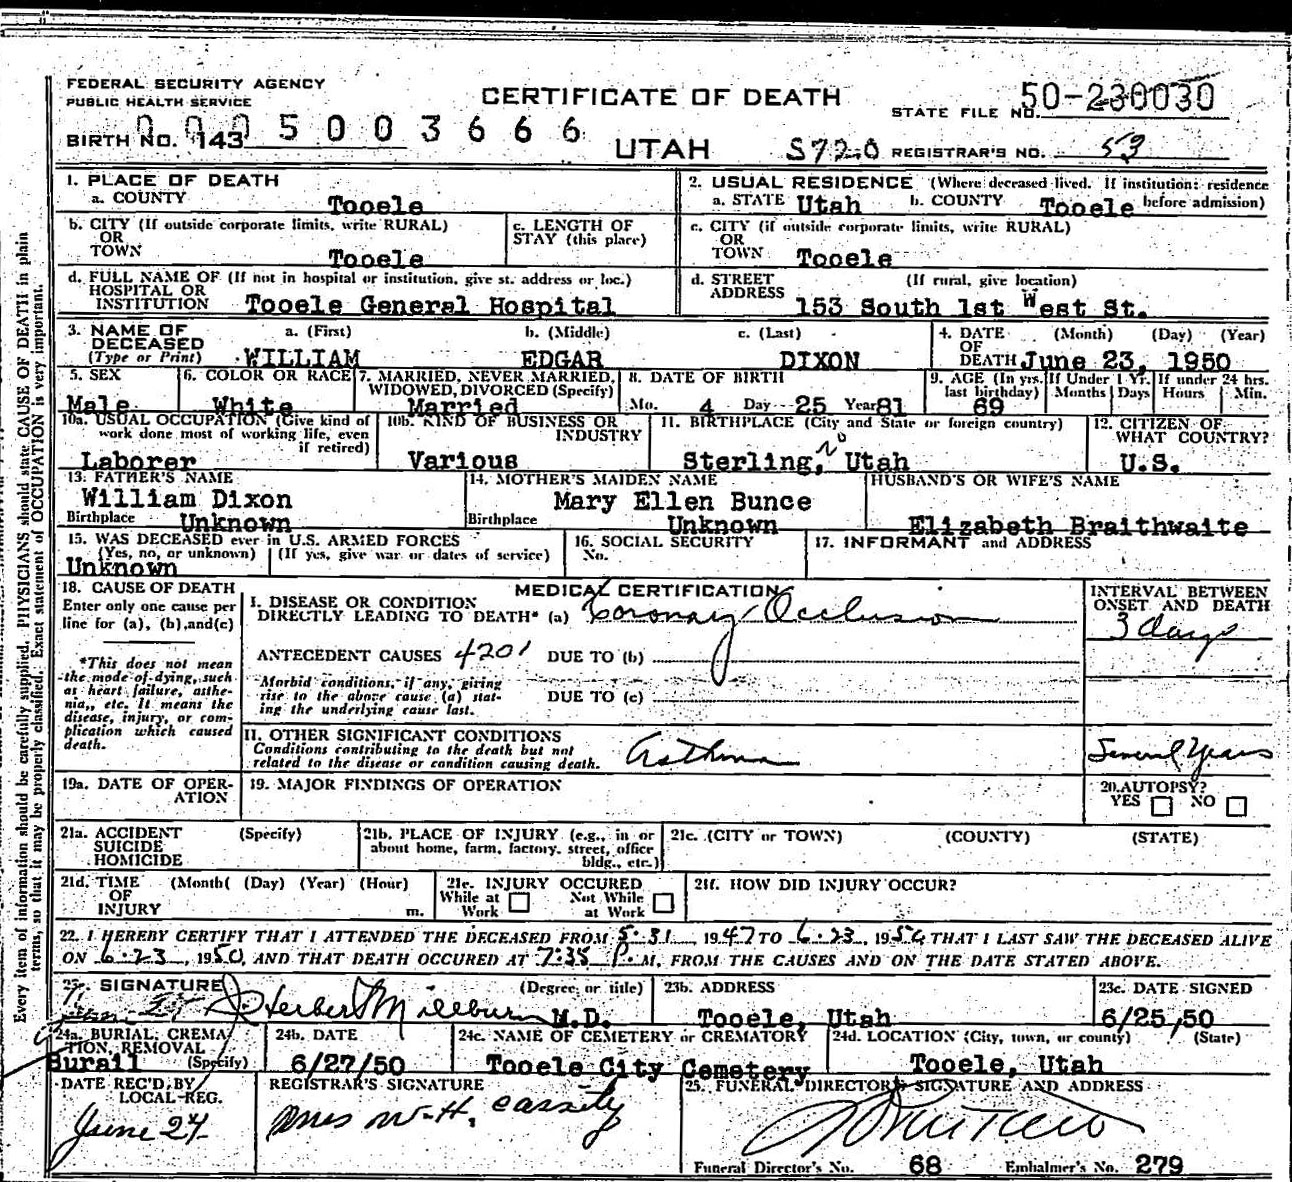 FEDERAL SECURITY AGENCY
PUBLIC HEALTH SERVICE
CERTIFICATE OF DEATH
STATE FILE NO. 50-230030
BIRTH NO. 143 0005003666
UTAH S720 REGISTRAR'S NO. 53
1. PLACE OF DEATH
a. COUNTY Tooele
2. USUAL RESIDENCE (Where deceased lived. If institution: residence before admission)
a. STATE Utah b. COUNTY Tooele
b. CITY (If outside corporate limits, write RURAL)
OR
TOWN Tooele
c. LENGTH OF
STAY (this place)
c. CITY (if outside corporate limits, write RURAL)
OR
TOWN Tooele
d. FULL NAME OF (If not in hospital or institution, give st. address or loc.)
HOSPITAL OR
INSTITUTION Tooele General Hospital
d. STREET (If rural, give location)
ADDRESS 153 South 1st West St.
3. NAME OF a. (First) b. (Middle) c. (Last)
DECEASED
(Type or Print) WILLIAM EDGAR DIXON
4. DATE (Month) (Day) (Year)
OF
DEATH June 23, 1950
5. SEX
Male
6. COLOR OR RACE
White
7. MARRIED, NEVER MARRIED,
WIDOWED, DIVORCED (Specify)
Married
8. DATE OF BIRTH
Mo. 4 Day 25 Year 81
9. AGE (In yrs. last birthday)
69
If Under 1 Yr.
Months Days
If under 24 hrs.
Hours Min.
10a. USUAL OCCUPATION (Give kind of
work done most of working life, even
if retired)
Laborer
10b. KIND OF BUSINESS OR
INDUSTRY
Various
11. BIRTHPLACE (City and State or foreign country)
Sterling, Utah
12. CITIZEN OF
WHAT COUNTRY?
U.S.
13. FATHER'S NAME
William Dixon
Birthplace Unknown
14. MOTHER'S MAIDEN NAME
Mary Ellen Bunce
Birthplace Unknown
HUSBAND'S OR WIFE'S NAME
Elizabeth Braithwaite
15. WAS DECEASED ever in U.S. ARMED FORCES
(Yes, no, or unknown) (If yes, give war or dates of service)
Unknown
16. SOCIAL SECURITY
No.
17. INFORMANT and ADDRESS
18. CAUSE OF DEATH
Enter only one cause per
line for (a), (b), and (c)
*This does not mean
the mode of dying, such
as heart failure, asthe-
nia,, etc. It means the
disease, injury, or com-
plication which caused
death.
MEDICAL CERTIFICATION
I. DISEASE OR CONDITION
DIRECTLY LEADING TO DEATH* (a) Coronary Occlusion
ANTECEDENT CAUSES 4201 DUE TO (b)
Morbid conditions, if any, giving
rise to the above cause (a) stat-
ing the underlying cause last.
DUE TO (c)
INTERVAL BETWEEN
ONSET AND DEATH
3 days
II. OTHER SIGNIFICANT CONDITIONS
Conditions contributing to the death but not
related to the disease or condition causing death. Asthma
Several Years
19a. DATE OF OPER-
ATION
19. MAJOR FINDINGS OF OPERATION
20. AUTOPSY?
YES NO
21a. ACCIDENT (Specify)
SUICIDE
HOMICIDE
21b. PLACE OF INJURY (e.g., in or
about home, farm, factory, street, office
bldg., etc.)
21c. (CITY or TOWN) (COUNTY) (STATE)
21d. TIME (Month( (Day) (Year) (Hour)
OF
INJURY m.
21e. INJURY OCCURED
While at Work Not While at Work
21f. HOW DID INJURY OCCUR?
22. I HEREBY CERTIFY THAT I ATTENDED THE DECEASED FROM 5-31, 1947 TO 6-23, 1950 THAT I LAST SAW THE DECEASED ALIVE
ON 6-23, 1950, AND THAT DEATH OCCURED AT 7:35 P. M, FROM THE CAUSES AND ON THE DATE STATED ABOVE.
SIGNATURE (Degree or title)
J Herbert Millburn M.D.
23b. ADDRESS
Tooele, Utah
23c. DATE SIGNED
6/25,50
24a. BURIAL, CREMA
TION, REMOVAL
(Specify)
Burail
24b. DATE
6/27/50
24c. NAME OF CEMETERY or CREMATORY
Tooele City Cemetery
24d. LOCATION (City, town, or county) (State)
Tooele, Utah
DATE REC'D BY
LOCAL REG.
June 24
REGISTRAR'S SIGNATURE
Mrs W. H. Cassity
25. FUNERAL DIRECTOR'S SIGNATURE AND ADDRESS
Funeral Director's No. 68 Embalmer's No. 279
Every item of information should be carefully supplied. PHYSICIANS should state CAUSE OF DEATH in plain
terms, so that it may be properly classified. Exact statement of OCCUPATION is very important.